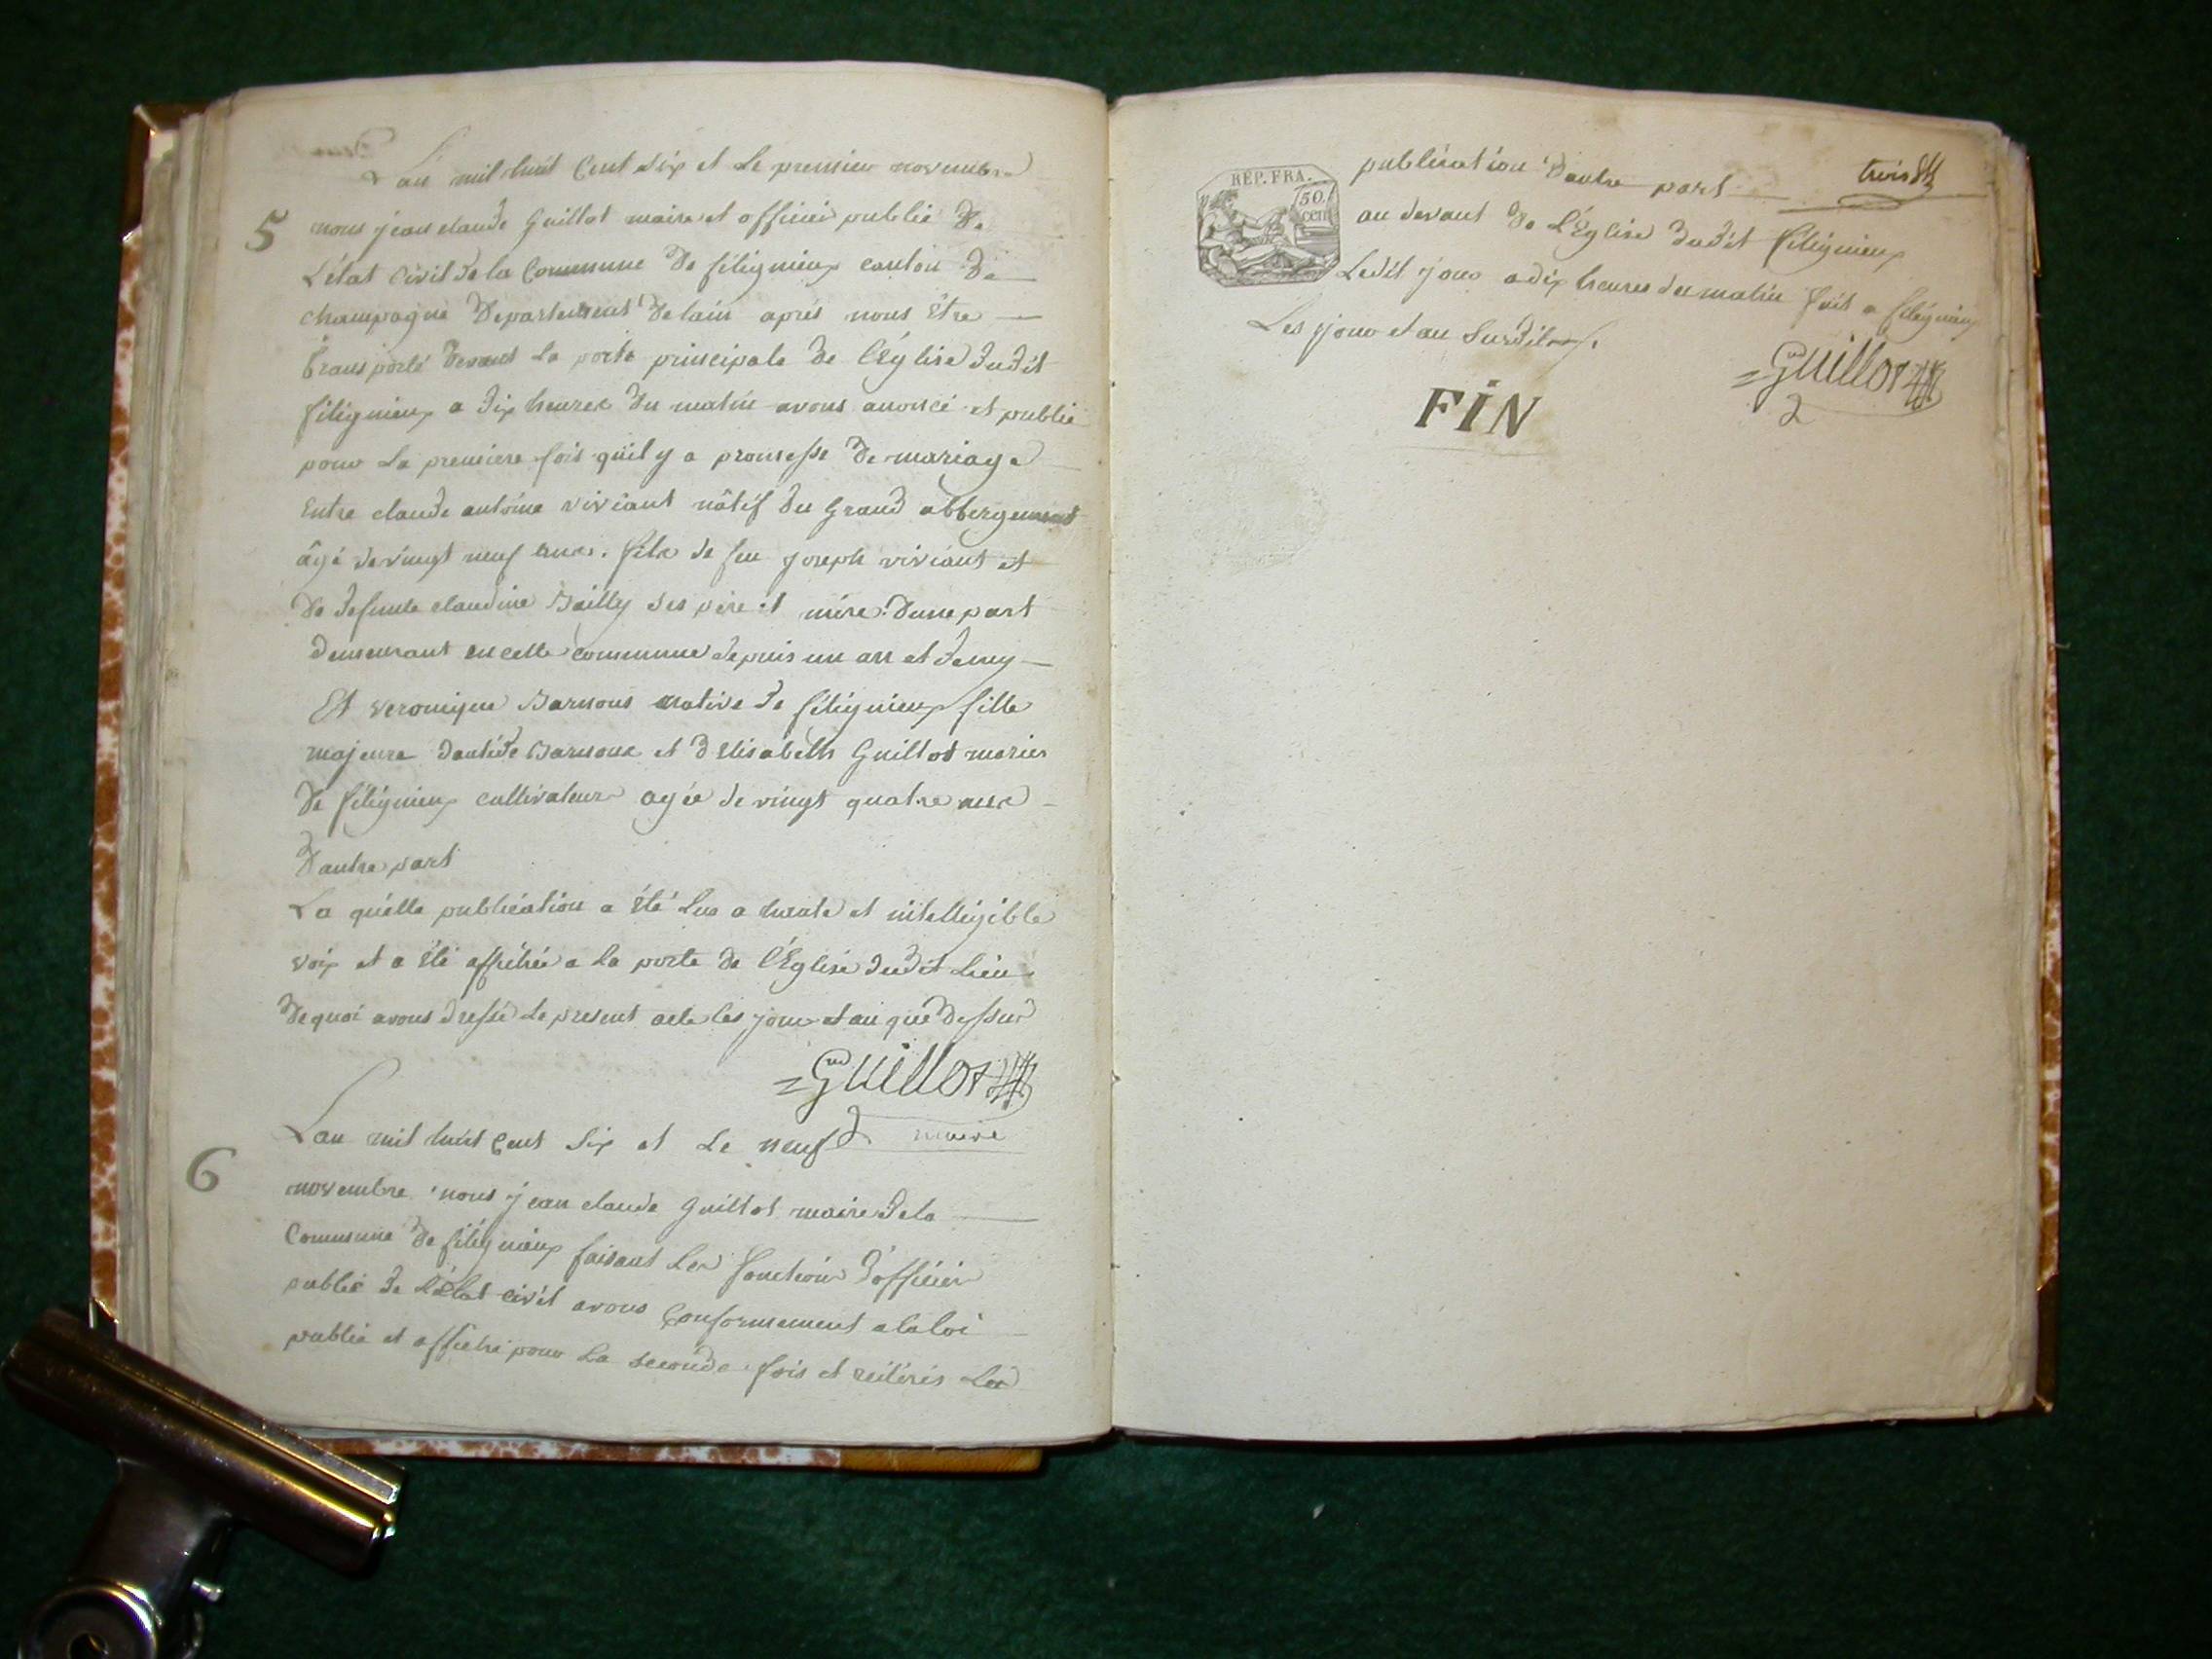 L'an mil huit Cent Six et Le premier novembre
5 nous jean claude Guillot maire et officier public De
L'état Civil de la Commune De filignieux canton De
champagne Departement Delain aprés nous Être
transporté devant La porte principale De l'Église dudit
filignieux a dix heures Du matin avons anoncé et publié
pour La premiere fois qu'il y a promesse De mariage
Entre claude antoine viviant nâtif Du Grand abbergement
âgé de vingt neuf ans. fils de feu joseph viviant et
De defunte claudine Bailly ses pere et mere. D'une part
demeurant en cette commune depuis un an et demy
Et veronique Barnous native de filignieux fille
majeure Barnoux et d'Elisabeth Guillot mariés
De filignieux cultivateurs agée de vingt quatre ans
D'autre part
La quelle publication a été Lue a haute et intelligible
voix et a été affichée a La porte De l'Église dudit Lieu
De quoi avons dressé Le present acte les jour et an que Dessus
Guillot
maire
6 L'an mil huit Cent Six et Le neuf
novembre nous jean claude Guillot maire de la
Commune De filignieux faisant Les fonctions d'officier
public de L'état civil avons Conformement a la loi
publié et affiché pour La seconde fois et reiterés La
trois
REP. FRA.
50
cent
publication D'autre part
au devant De L'Église dudit filignieux
Ledit jour a dix heures du matin fait a filignieux
Les jour et an Susdit
Guillot
FIN